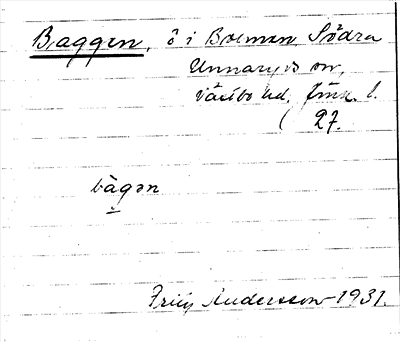 Baggen, ö i Bolmen, Södra
Unnaryds sn,
Västbo hd. Jönk. l.
( 27.
bàgǝn
Fritz Andersson 1931.